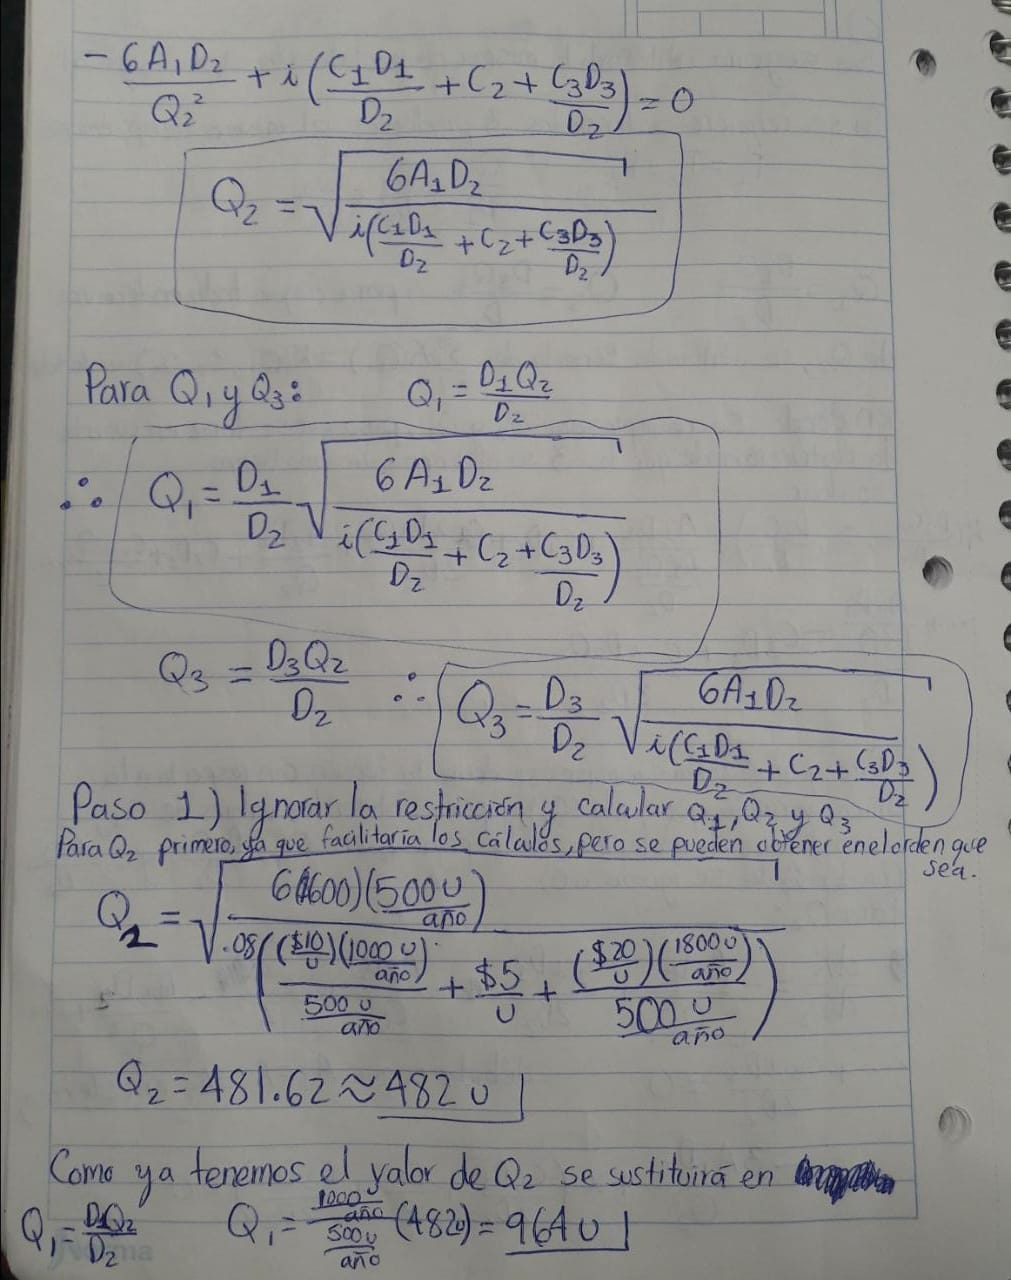 - 6A₁D₂/Q₂² + i(C₁D₁/D₂ + C₂ + C₃D₃/D₂) = 0
Q₂ = √(6A₁D₂ / i(C₁D₁/D₂ + C₂ + C₃D₃/D₂))
Para Q₁ y Q₃: Q₁ = D₁Q₂/D₂
∴ Q₁ = D₁/D₂ √(6A₁D₂ / i(C₁D₁/D₂ + C₂ + C₃D₃/D₂))
Q₃ = D₃Q₂/D₂ ∴ Q₃ = D₃/D₂ √(6A₁D₂ / i(C₁D₁/D₂ + C₂ + C₃D₃/D₂))
Paso 1) Ignorar la restricción y calcular Q₁, Q₂ y Q₃
Para Q₂ primero, ya que facilitaría los cálculos, pero se pueden obtener en el orden que
sea.
Q₂ = √(6(600)(500 u/año) / .08(($10/u)(1000 u/año)/(500 u/año) + $5/u + ($20/u)(1800 u/año)/(500 u/año)))
Q₂ = 481.62 ≈ 482 u
Como ya tenemos el valor de Q₂ se sustituirá en
Q₁ = D₁Q₂/D₂ Q₁ = (1000 u/año)/(500 u/año) (482u) = 964 u
Norma